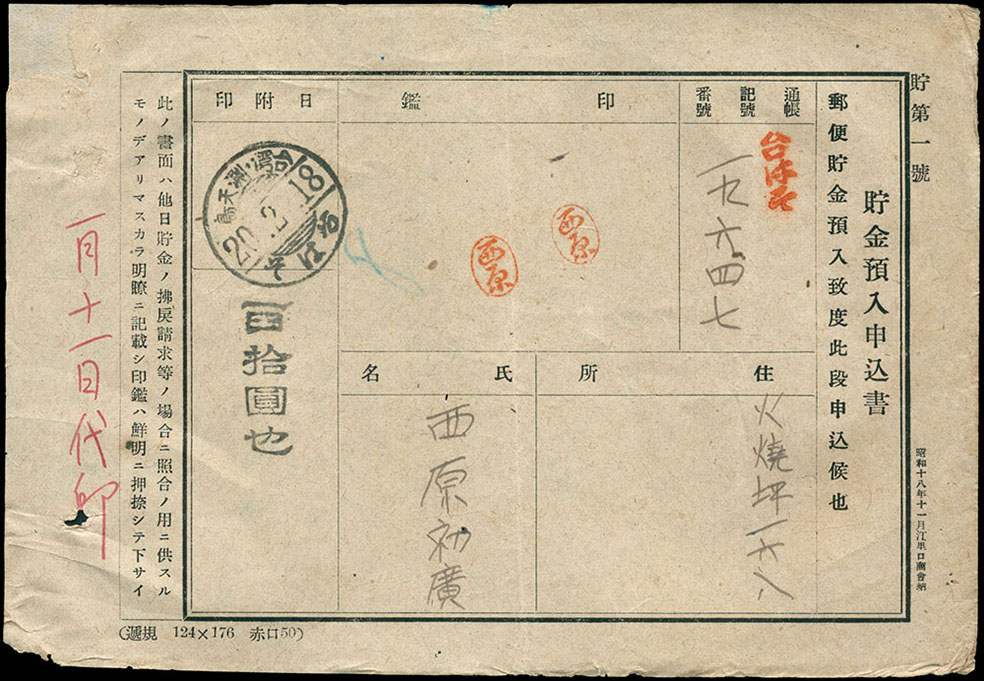 貯第一號
貯金預入申込書
郵便貯金預入致度此段申込候也
昭和十八年十一月江里口商會納
通帳
記號
番號
一九六四七
印鑑
西原
西原
住所
火燒坪一六八
氏名
西原初廣
日附印
台灣
20.2.18
百拾圓也
此ノ書面ハ他日貯金ノ拂戻請求等ノ場合ニ照合ノ用ニ供スル
モノデアリマスカラ明瞭ニ記載シ印鑑ハ鮮明ニ押捺シテ下サイ
一月十一日代印
(遞規 124×176 赤口50)